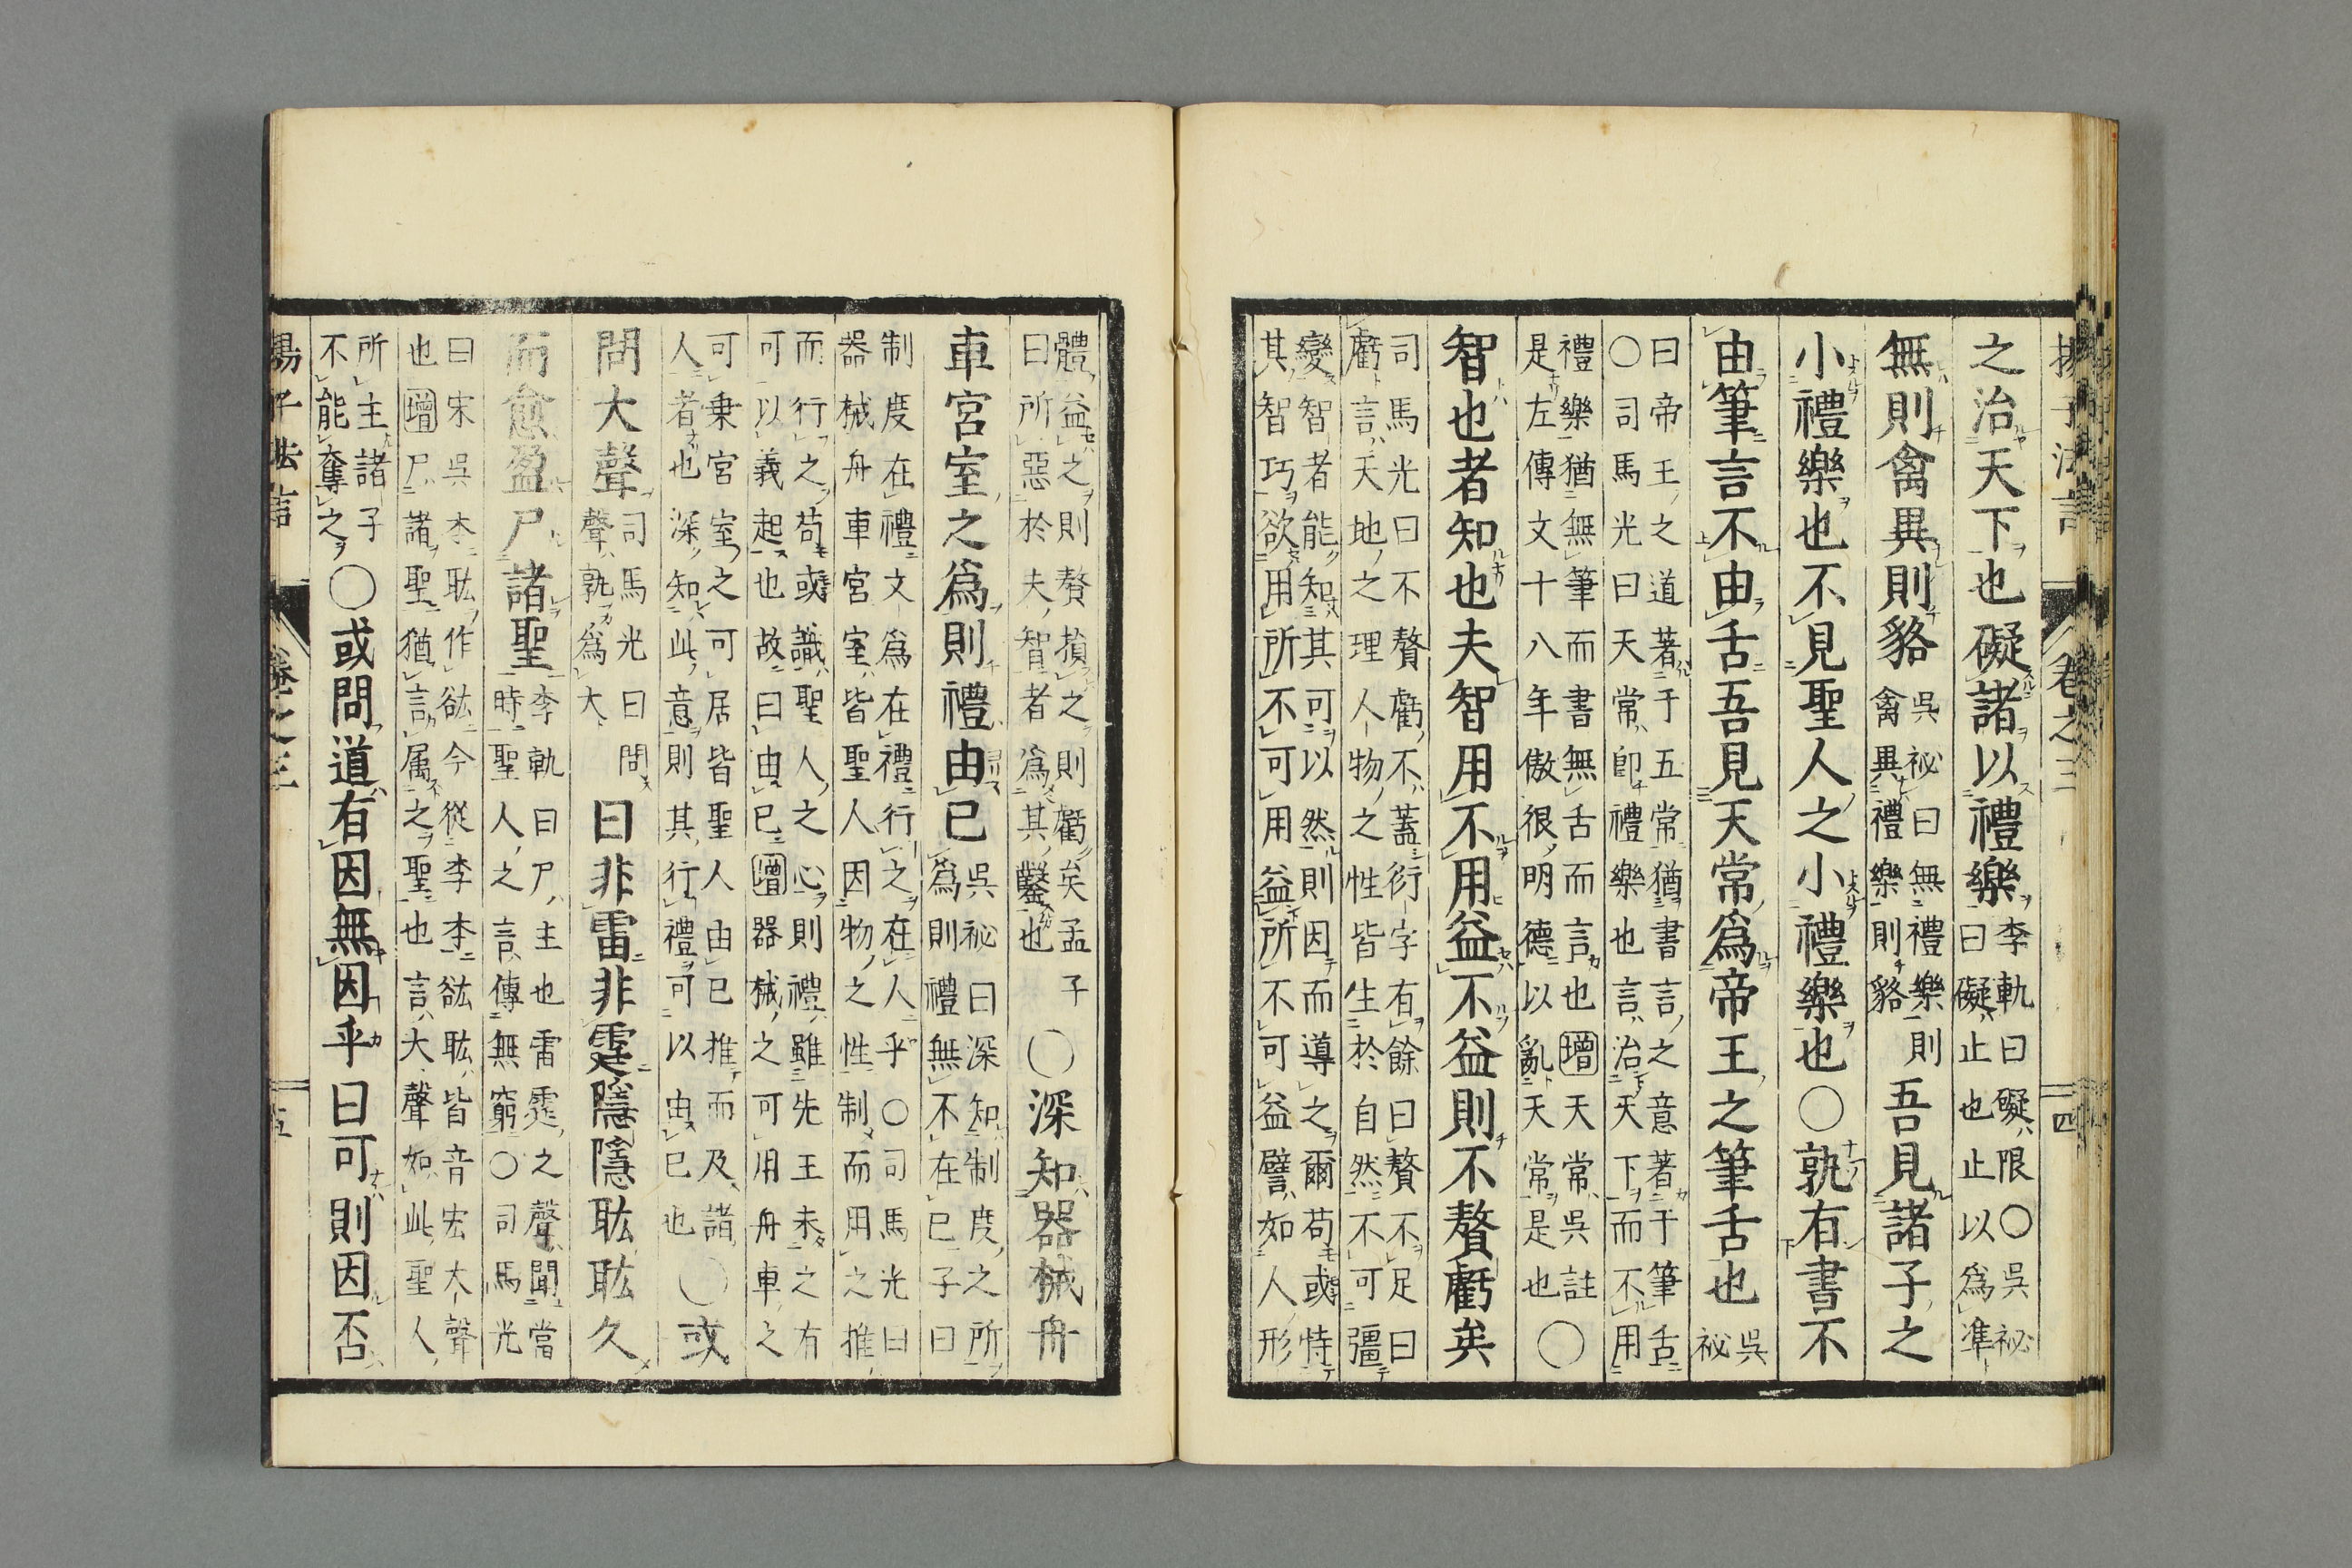 揚子法言 卷之三 四
之治天下也礙諸以禮樂李軌曰礙限○吳祕曰礙止也止以爲準
無則禽異則貉吳祕曰無禮樂則禽異禮樂則貉吾見諸子之
小禮樂也不見聖人之小禮樂也○孰有書不
由筆言不由舌吾見天常爲帝王之筆舌也吳祕
曰帝王之道著于五常猶書言之意著于筆舌
○司馬光曰天常卽禮樂也言治天下而不用
禮樂猶無筆而書無舌而言也增天常吳註
是左傳文十八年傲很明德以亂天常是也○
智也者知也夫智用不用益不益則不贅虧矣
司馬光曰不贅虧不蓋衍字有餘曰贅不足曰
虧言天地之理人物之性皆生於自然不可彊
變智者能知其可以然則因而導之爾苟或恃
其智巧欲用所不可用益所不可益譬如人形
體益之則贅損之則虧矣孟子
曰所惡於夫智者爲其鑿也○深知器械舟
車宮室之爲則禮由已吳祕曰深知制度之所爲則禮無不在已子曰
制度在禮文爲在禮行之在人乎○司馬光曰
器械舟車宮室皆聖人因物之性制而用之推
而行之苟或識聖人之心則禮雖先王未之有
可以義起也故曰由已增器械之可用舟車之
可乗宮室之可居皆聖人由已推而及諸
人者也深知此意則其行禮可以由已也○或
問大聲司馬光曰問聲孰爲大曰非雷非霆隱隱耾耾久
而愈盈尸諸聖李軌曰尸主也雷霆之聲聞當時聖人之言傳無窮○司馬光
曰宋吳李耾作鈜今從李李鈜耾皆音宏大聲
也增尸諸聖猶言属之聖也言大聲如此聖人
所主諸子不能奪之○或問道有因無因乎曰可則因否
揚子法言 卷之三 五